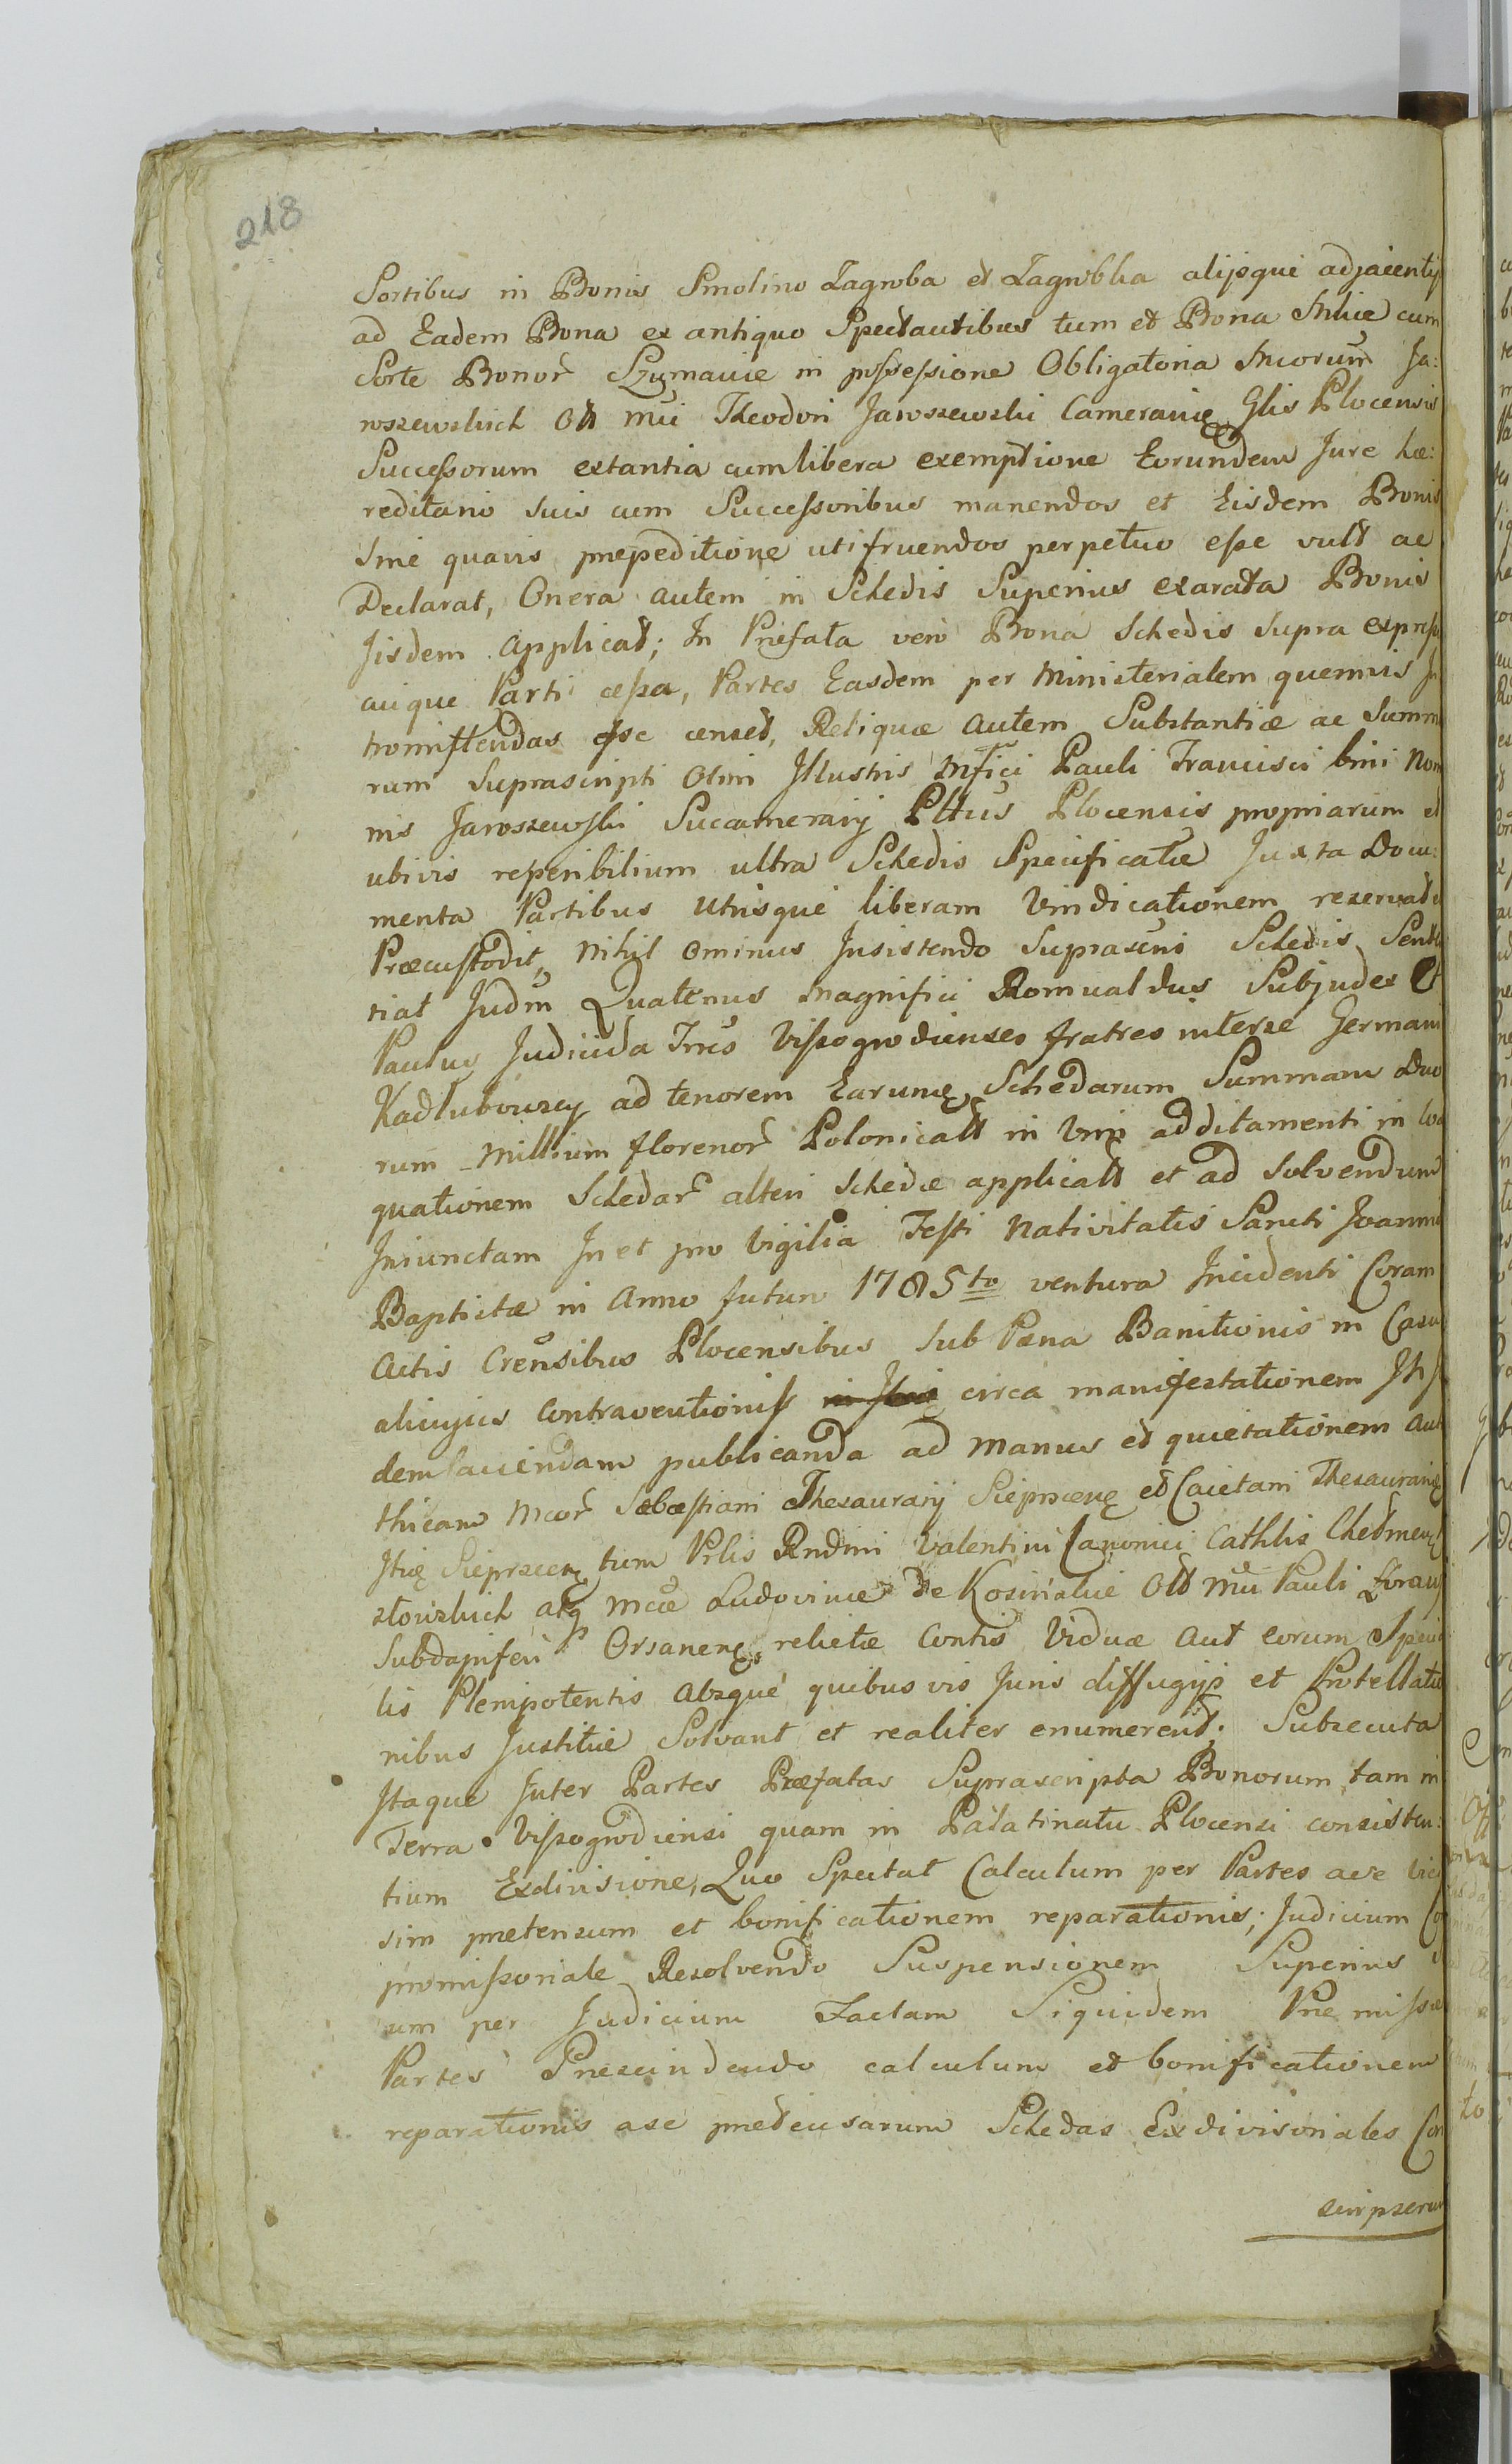 218
Sortibus in Bonis Smolino Zagroba et Zagrobka alijsque adjacentij
ad Eadem Bona ex antiquo Spectantibus tum et Bona cum
Sorte Bonor Szymanie in possessione Obligatoria Mcorum Ja:
roszewskich Olt Mci Theodori Jaroszewski Camerarię Glis Plocensis
Successorum extantia cum libera exemptione Eorundem Jure hæ:
reditario suis cum Successoribus manendos et Eisdem Bonis
Sine quavis præpeditione utifruendos perpetuo esse vult ac
Declarat, Onera autem in Schedis Superius exarata Bonis
Jisdem applicat; In Præfata vero Bona Schedis Supra expressa
cuique Parti cessa, Partes Easdem per Ministerialem quemvis In
tromittendas esse censet, Reliquæ autem Substantiæ ac Summa
rum Suprascripti Olim Jllustris Mfici Pauli Francisci bini Nom
nis Jaroszewski Succamerarij Pltus Plocensis propriarum et
ubivis reperibilium ultra Schedis Specificatæ Juxta Docu:
menta Partibus Utrisque liberam Vindicationem reservat
Præcustodit, Nihil ominus Insistendo Suprascris Schedis Senten
tiat Judm Quatenus Magnifici Romualdus Subjudex Et
Paulus Judicida Trres Vissogrodienses fratres interse Germani
Kadlubowscy ad tenorem Earumę Schedarum Summam Duo
rum Millium florenor Polonicalt in Vim additamenti in Coæ
quationem Schedar alteri Schedæ applicalt et ad Solvendum
Iniunctam In et pro Vigilia Festi Nativitatis Sancti Joannis
Baptistæ in Anno futuro 1785to ventura Incidenti Coram
Actis Crensibus Plocensibus Sub Pæna Banitionis in Casu
alicujus Contraventionis circa manifestationem
dem faciendam publicanda ad Manus et quietationem aut
thicam Mcor Sebæstiani Thesaurarij Sieprscenę et Caietani Thesaurarię
Jtię Sieprscenę tum Prlis Rndmi Valentini Canonici Cathlis Chelmenę
stowskich atq Mcæ Ludovicæ de Kosinskie Olt Mci Pauli
Subdapiferi Orsanenę relictæ Contis Viduæ Aut eorum Specia
lis Plenipotentis Absque quibus vis Juris diffugijs et Protellatio
nibus Justitiæ Solvant et realiter enumerent. Subsecuta
Itaque Inter Partes Præfatas Suprascripta Bonorum tam in
Terra Vissogrodiensi quam in Palatinatu Plocensi consisten:
tium Exdivisione, Quo Spectat Calculum per Partes a se vicis
sim prætensum et bonificationem reparationis; Judicium Co
promissoriale Resolvendo Suspensionem Superius
um per Judicium Factam Siquidem Præmissæ
Partes Prescindendo calculum et bonificationem
reparationis a se prætensarum Schedas Exdivisoriales Con
scripserunt